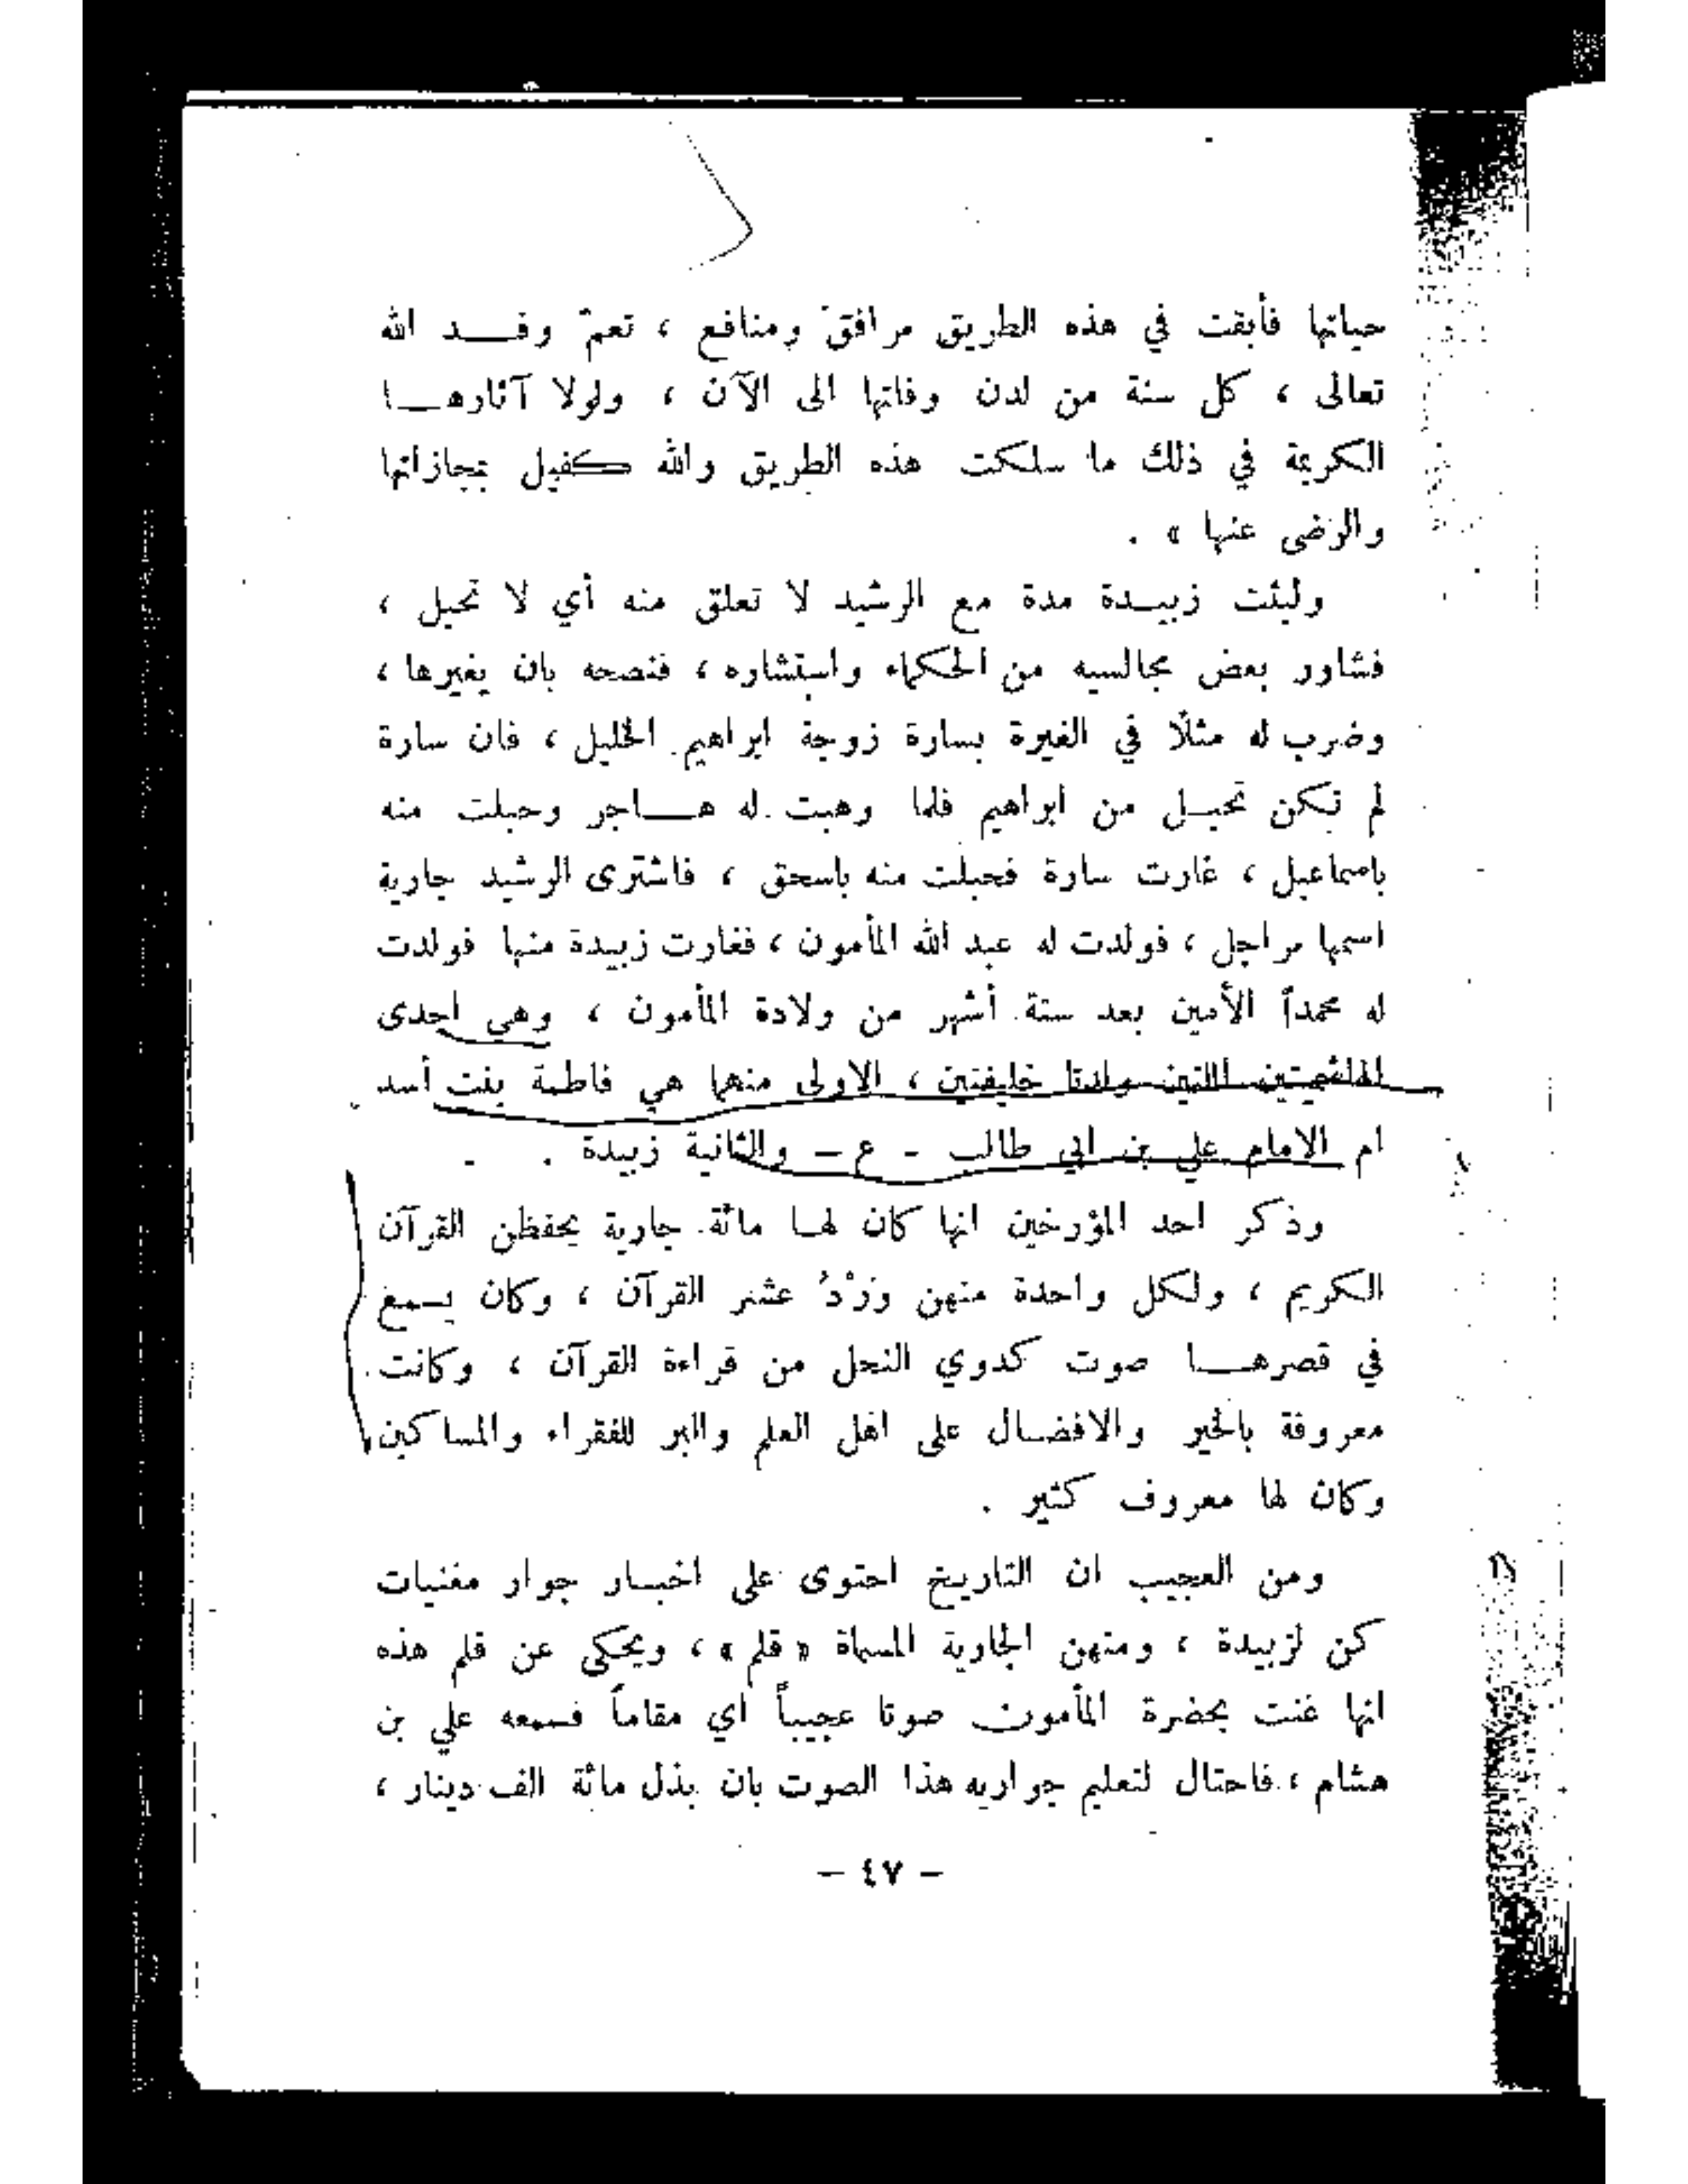 حياتها فأبقت في هذه الطريق مرافق ومنافع ، تعمّ وفد الله
تعالى ، كل سنة من لدن وفاتها الى الآن ، ولولا آثارها
الكريمة في ذلك ما سلكت هذه الطريق والله كفيل بمجازاتها
والرضى عنها » .
ولبثت زبيدة مدة مع الرشيد لا تعلق منه أي لا تحبل ،
فشاور بعض مجالسيه من الحكماء واستشاره ، فنصحه بان يغيرها ،
وضرب له مثلًا في الغيرة بسارة زوجة ابراهيم الخليل ، فان سارة
لم تكن تحبل من ابراهيم فلما وهبت له هاجر وحبلت منه
باسماعيل ، غارت سارة فحبلت منه باسحق ، فاشترى الرشيد جارية
اسمها مراجل ، فولدت له عبد الله المأمون ، فغارت زبيدة منها فولدت
له محمداً الأمين بعد ستة أشهر من ولادة المأمون ، وهي احدى
الهاشميتين اللتين ولدتا خليفتين ، الاولى منهما هي فاطمة بنت أسد
ام الامام علي بن ابي طالب - ع - والثانية زبيدة .
وذكر احد المؤرخين انها كان لها مائة جارية يحفظن القرآن
الكريم ، ولكل واحدة منهن وِرْدُ عشر القرآن ، وكان يسمع
في قصرها صوت كدوي النحل من قراءة القرآن ، وكانت
معروفة بالخير والافضال على اهل العلم والبر للفقراء والمساكين
وكان لها معروف كثير .
ومن العجيب ان التاريخ احتوى على اخبار جوار مغنيات
كن لزبيدة ، ومنهن الجارية المسماة « قلم » ، ويحكى عن قلم هذه
انها غنت بحضرة المأمون صوتا عجيباً أي مقاماً فسمعه علي بن
هشام ، فاحتال لتعليم جواريه هذا الصوت بان بذل مائة الف دينار ،
- ٤٧ -